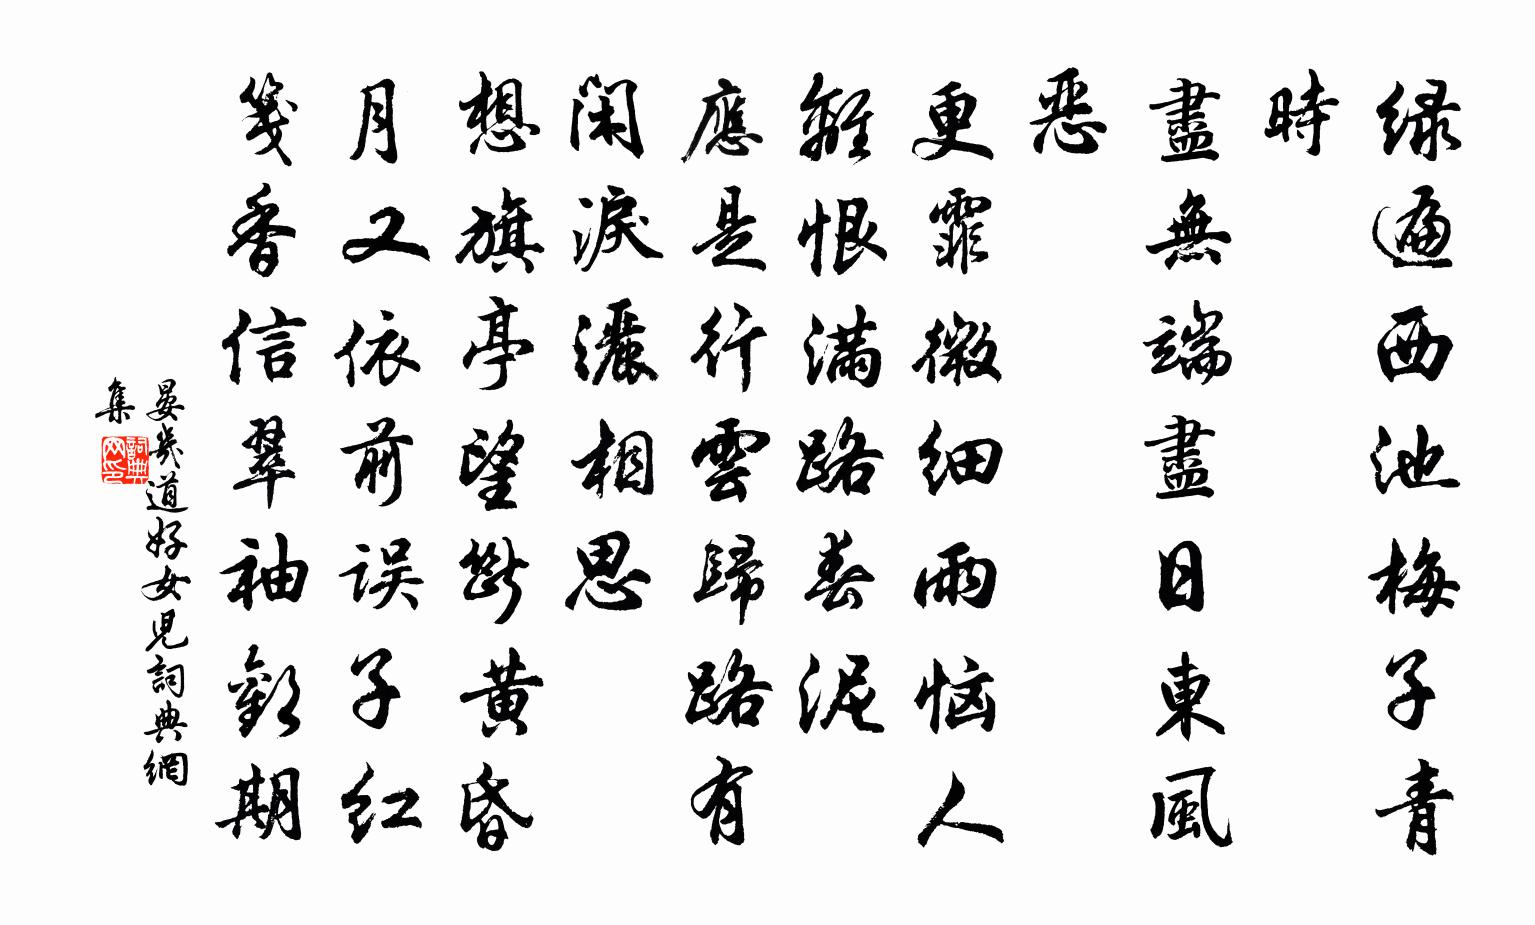 緑遍西池梅子青
時
盡無端盡日東風
惡
更霏微細雨惱人
離恨滿路春泥
應是行雲歸路有
閑淚灑相思
想旗亭望斷黃昏
月又依前误子红
箋香信翠袖歡期
晏幾道好女兒詞典網
集
詞典网印